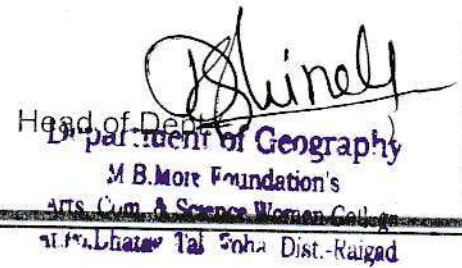 Head of Dept
Department of Geography
M B.More Foundation's
Arts, Com. & Science Women College
Dhatav Tal Roha Dist.-Raigad